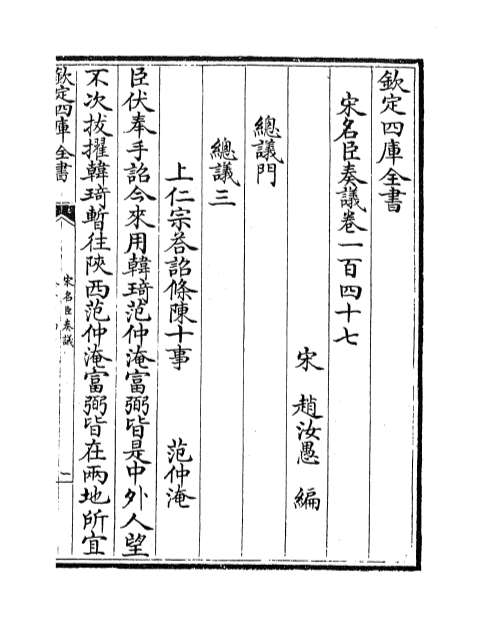 欽定四庫全書
宋名臣奏議卷一百四十七
宋 趙汝愚 編
總議門
總議三
上仁宗荅詔條陳十事 范仲淹
臣伏奉手詔今來用韓琦范仲淹富弼皆是中外人望
不次拔擢韓琦暫往陝西范仲淹富弼皆在兩地所宜
欽定四庫全書
宋名臣奏議
一